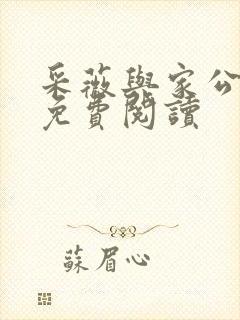 采薇與家公
免費閱讀
蘇眉心